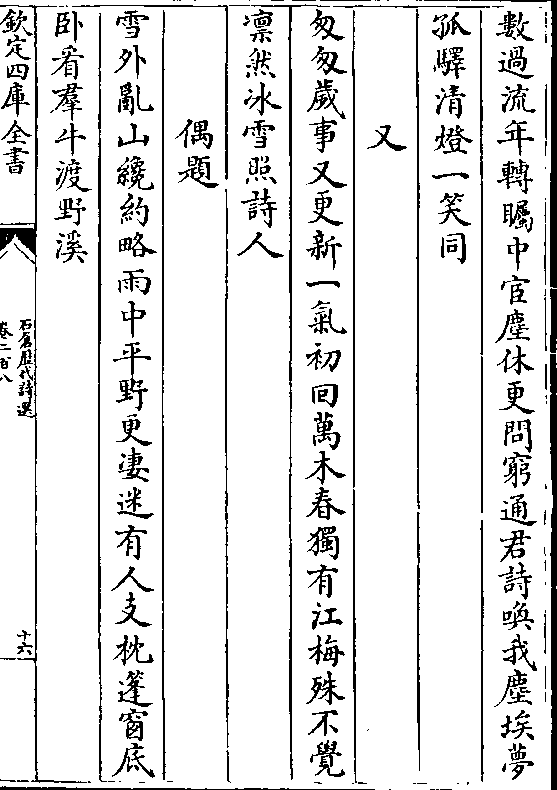 數過流年轉矚中宦塵休更問窮通君詩喚我塵埃夢
孤驛清燈一笑同
又
匆匆歲事又更新一氣初回萬木春獨有江梅殊不覺
凛然冰雪照詩人
偶題
雪外亂山纔約略雨中平野更凄迷有人支枕蓬窗底
卧看羣牛渡野溪
欽定四庫全書
石倉歷代詩選
卷二百八
十六